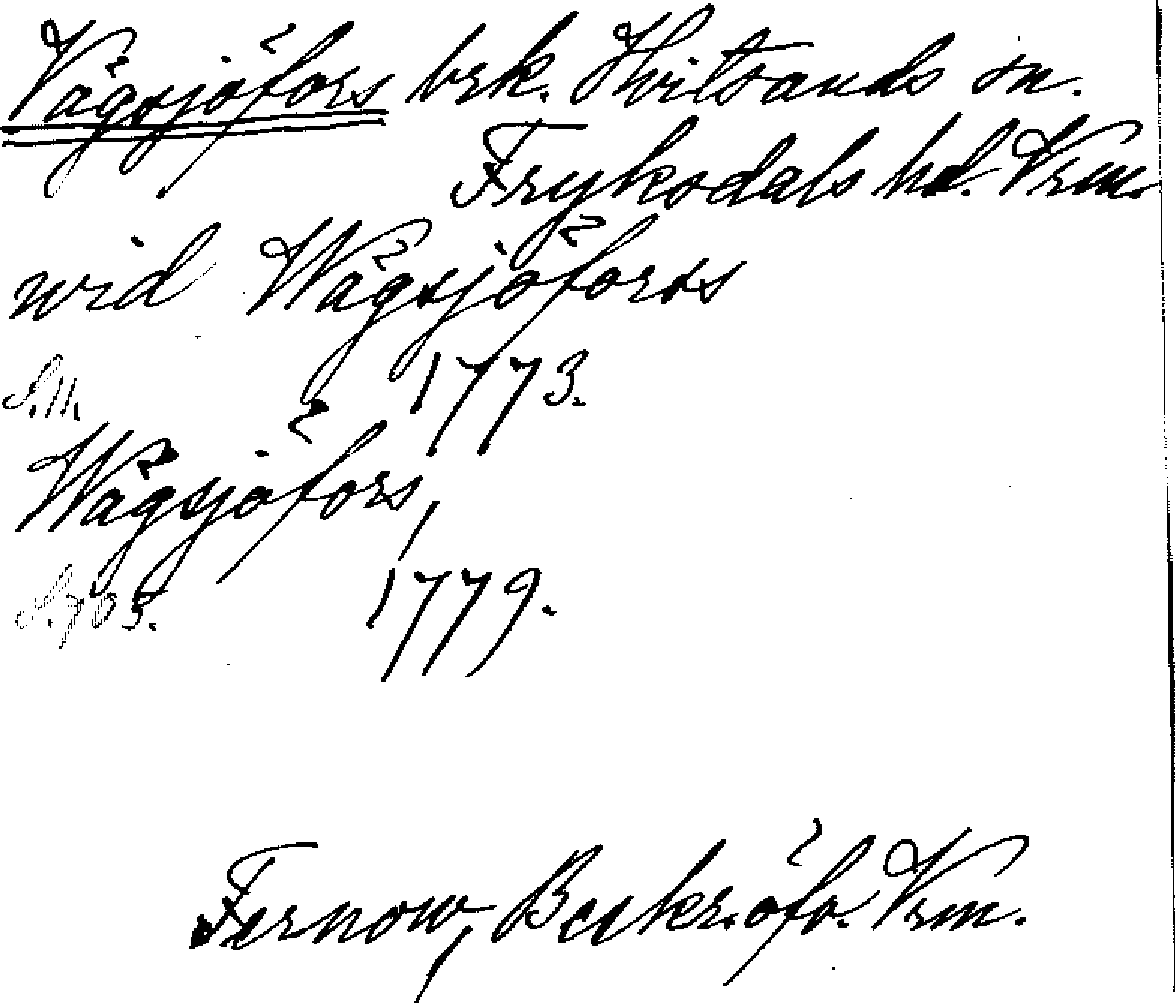 Vågsjöfors brk. Hvitsands sn.
Fryksdals hd. Vrm.
wid Wågsjöforss
S. 11. 1773.
Wågsjöfors,
S. 703. 1779.
Fernow, Beskr. öfv. Vrm.